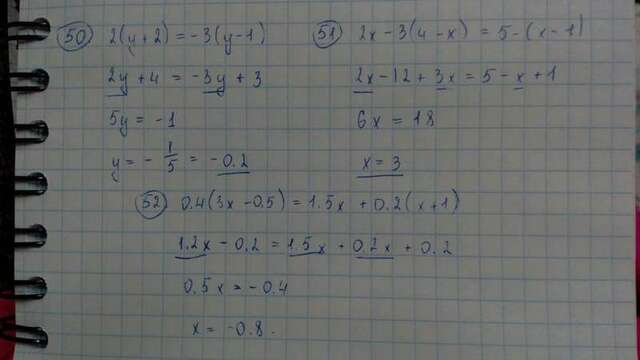 50 2(y+2) = -3(y-1)
2y + 4 = -3y + 3
5y = -1
y = - 1/5 = -0.2
51 2x - 3(4-x) = 5 - (x-1)
2x - 12 + 3x = 5 - x + 1
6x = 18
x = 3
52 0.4(3x - 0.5) = 1.5x + 0.2(x+1)
1.2x - 0.2 = 1.5x + 0.2x + 0.2
0.5x = -0.4
x = -0.8.